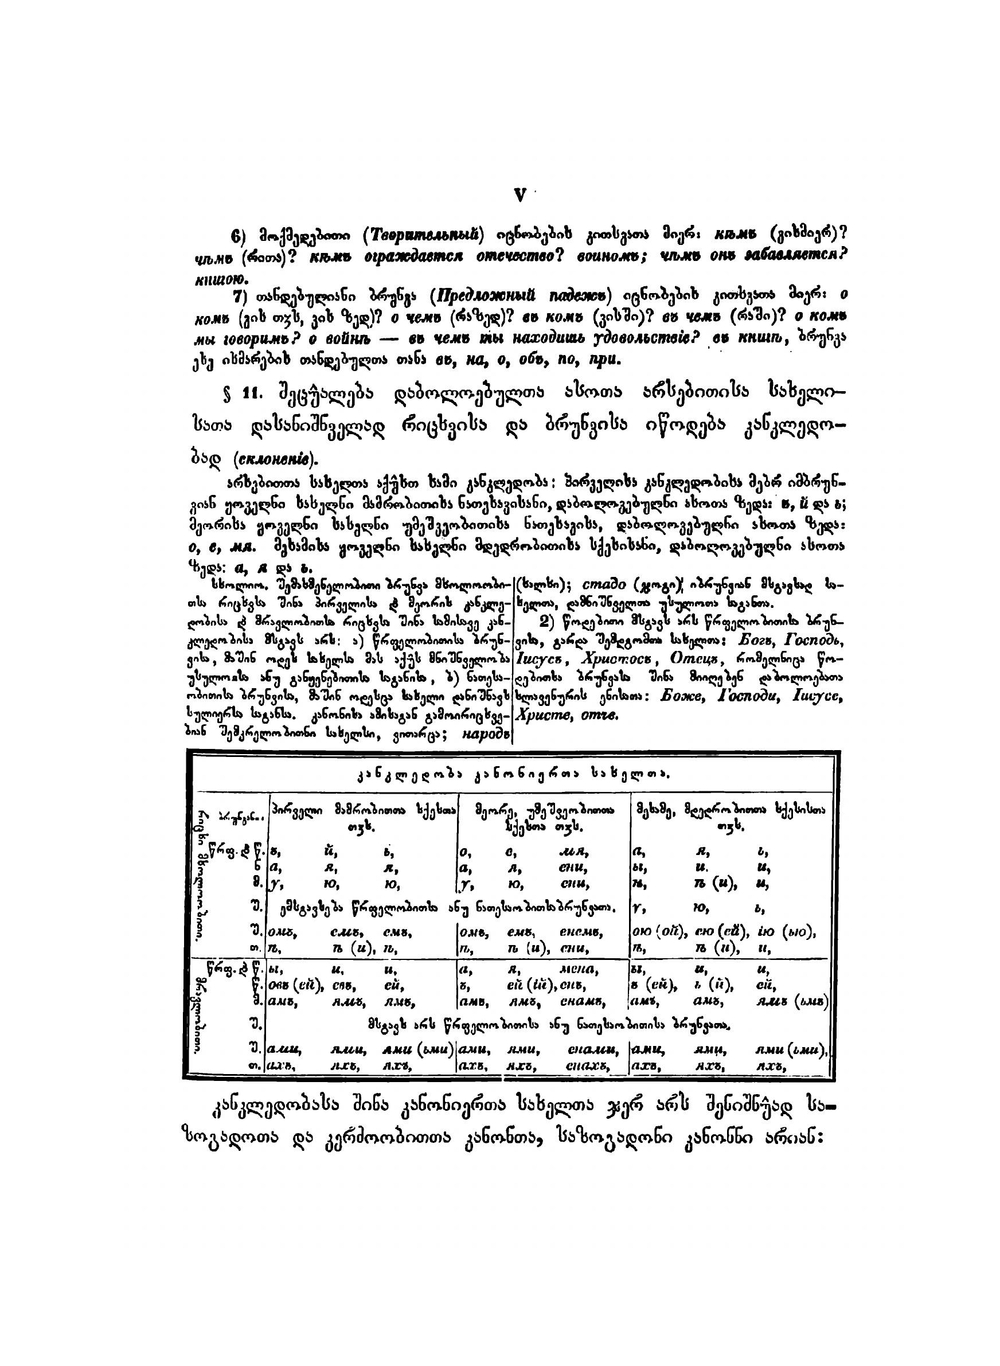 V
6) მოქმედებითი (Творительный) იცნობების კითხვათა მიერ: кѣмъ (ვისმიერ)?
чѣмъ (რითა)? кѣмъ ограждается отечество? воиномъ; чѣмъ онъ забавляется?
книгою.
7) თანდებულიანი ბრუნვა (Предложный падежъ) იცნობების კითხვათა მიერ: о
комъ (ვის თჳს, ვის ზედ)? о чемъ (რაზედ)? въ комъ (ვისში)? въ чемъ (რაში)? о комъ
мы говоримъ? о войнѣ — въ чемъ ты находишь удовольствіе? въ книгѣ, ბრუნვა
ესე იხმარების თანდებულთა თანა въ, на, о, объ, по, при.
§ 11. შეცჳალება დაბოლოებულთა ასოთა არსებითისა სახელი—
სათა დასანიშნველად რიცხვისა და ბრუნვისა იწოდება კანკლედო—
ბად (склоненіе).
არსებითთა სახელთა აქჳსთ სამი კანკლედობა: პირველისა კანკლედობისა მებრ იმბრუნ—
ვიან ყოველნი სახელნი მამრობითისა ნათესავისანი, დაბოლოვებულნი ასოთა ზედა: ъ, й და ь;
მეორისა ყოველნი სახელნი უმეშვეობითისა ნათესავისა, დაბოლოვებულნი ასოთა ზედა:
о, е, мя. მესამისა ყოველნი სახელნი მდედრობითისა სქესისანი, დაბოლოვებულნი ასოთა
ზედა: а, я და ь.
სხოლიო. შემასმენელობითი ბრუნვა მხოლოობი—
თსა რიცხვსა შინა პირველისა და მეორის კანკლე—
დობისა და მრავლობითსა რიცხვსა შინა სამისავე კან—
კლედობისა მსგავს არს: ა) წრფელობითისა ბრუნ—
ვისა, მაშინ ოდეს სახელსა მას აქჳს მნიშნველობა
უსულოსა ანუ განყენებითისა საგანისა, ბ) ნათესა—
ობითის ბრუნვისა, მაშინ ოდესცა სახელი დანიშნავს
სულიერსა საგანსა. კანონისა ამისაგან გამოირიცხვე—
ბიან შემკრელობითნი სახელნი, ვითარცა; народъ
(ხალხი); стадо (ჯოგი); იბრუნვიან მსგავსად სა—
ხელთა, დამნიშნველთა უსულოთა საგანთა.
2) წოდებითი მსგავს არს წრფელობითის ბრუნ—
ვისა, გარდა შემდგომთა სახელთა: Богъ, Господь,
Іисусъ, Христосъ, Отецъ, რომელნიცა წო—
დებითსა ბრუნვასა შინა მიიღებენ დაბოლოებათა
სლავენურის ენისათა: Боже, Господи, Іисусе,
Христе, отче.
კანკლედობა კანონიერთა სახელთა.
რიცხვი მხოლოობითი.
ბრუნვანი. პირველი მამრობითთა სქესთა თჳს. მეორე, უმეშვეობითთა სქესთა თჳს. მესამე, მდედრობითთა სქესისთა თჳს.
წრფ. და წ. ъ, й, ь, о, е, мя, а, я, ь,
ნ а, я, я, а, я, ени, ы, и. и,
მ. у, ю, ю, у, ю, ени, ѣ, ѣ (и), и,
შ. ემსგავსება წრფელობითსა ანუ ნათესაობითსა ბრუნვათა. у, ю, ь,
შ. омъ, емъ, емъ, омъ, емъ, енемъ, ою (ой), ею (ей), ію (ью),
თ. ѣ, ѣ (и), ѣ, ѣ, ѣ (и), ени, ѣ, ѣ (и), и,
მრავლობითი.
წრფ. და წ. ы, и, и, а, я, мена, ы, и, и,
ნ. овъ (ей), евъ, ей, ъ, ей (ій), енъ, ъ (ей), ь (й), ей,
მ. амъ, ямъ, ямъ, амъ, ямъ, енамъ, амъ, амъ, ямъ (ьмъ)
შ. მსგავს არს წრფელობითისა ანუ ნათესაობითისა ბრუნვათა.
შ. ами, ями, ями (ьми) ами, ями, енами, ами, ями, ями (ьми),
თ. ахъ, яхъ, яхъ, ахъ, яхъ, енахъ, ахъ, яхъ, яхъ,
კანკლედობასა შინა კანონიერთა სახელთა ჯერ არს შენიშნჳად სა—
ზოგადოთა და კერძოობითთა კანონთა, საზოგადონი კანონნი არიან: